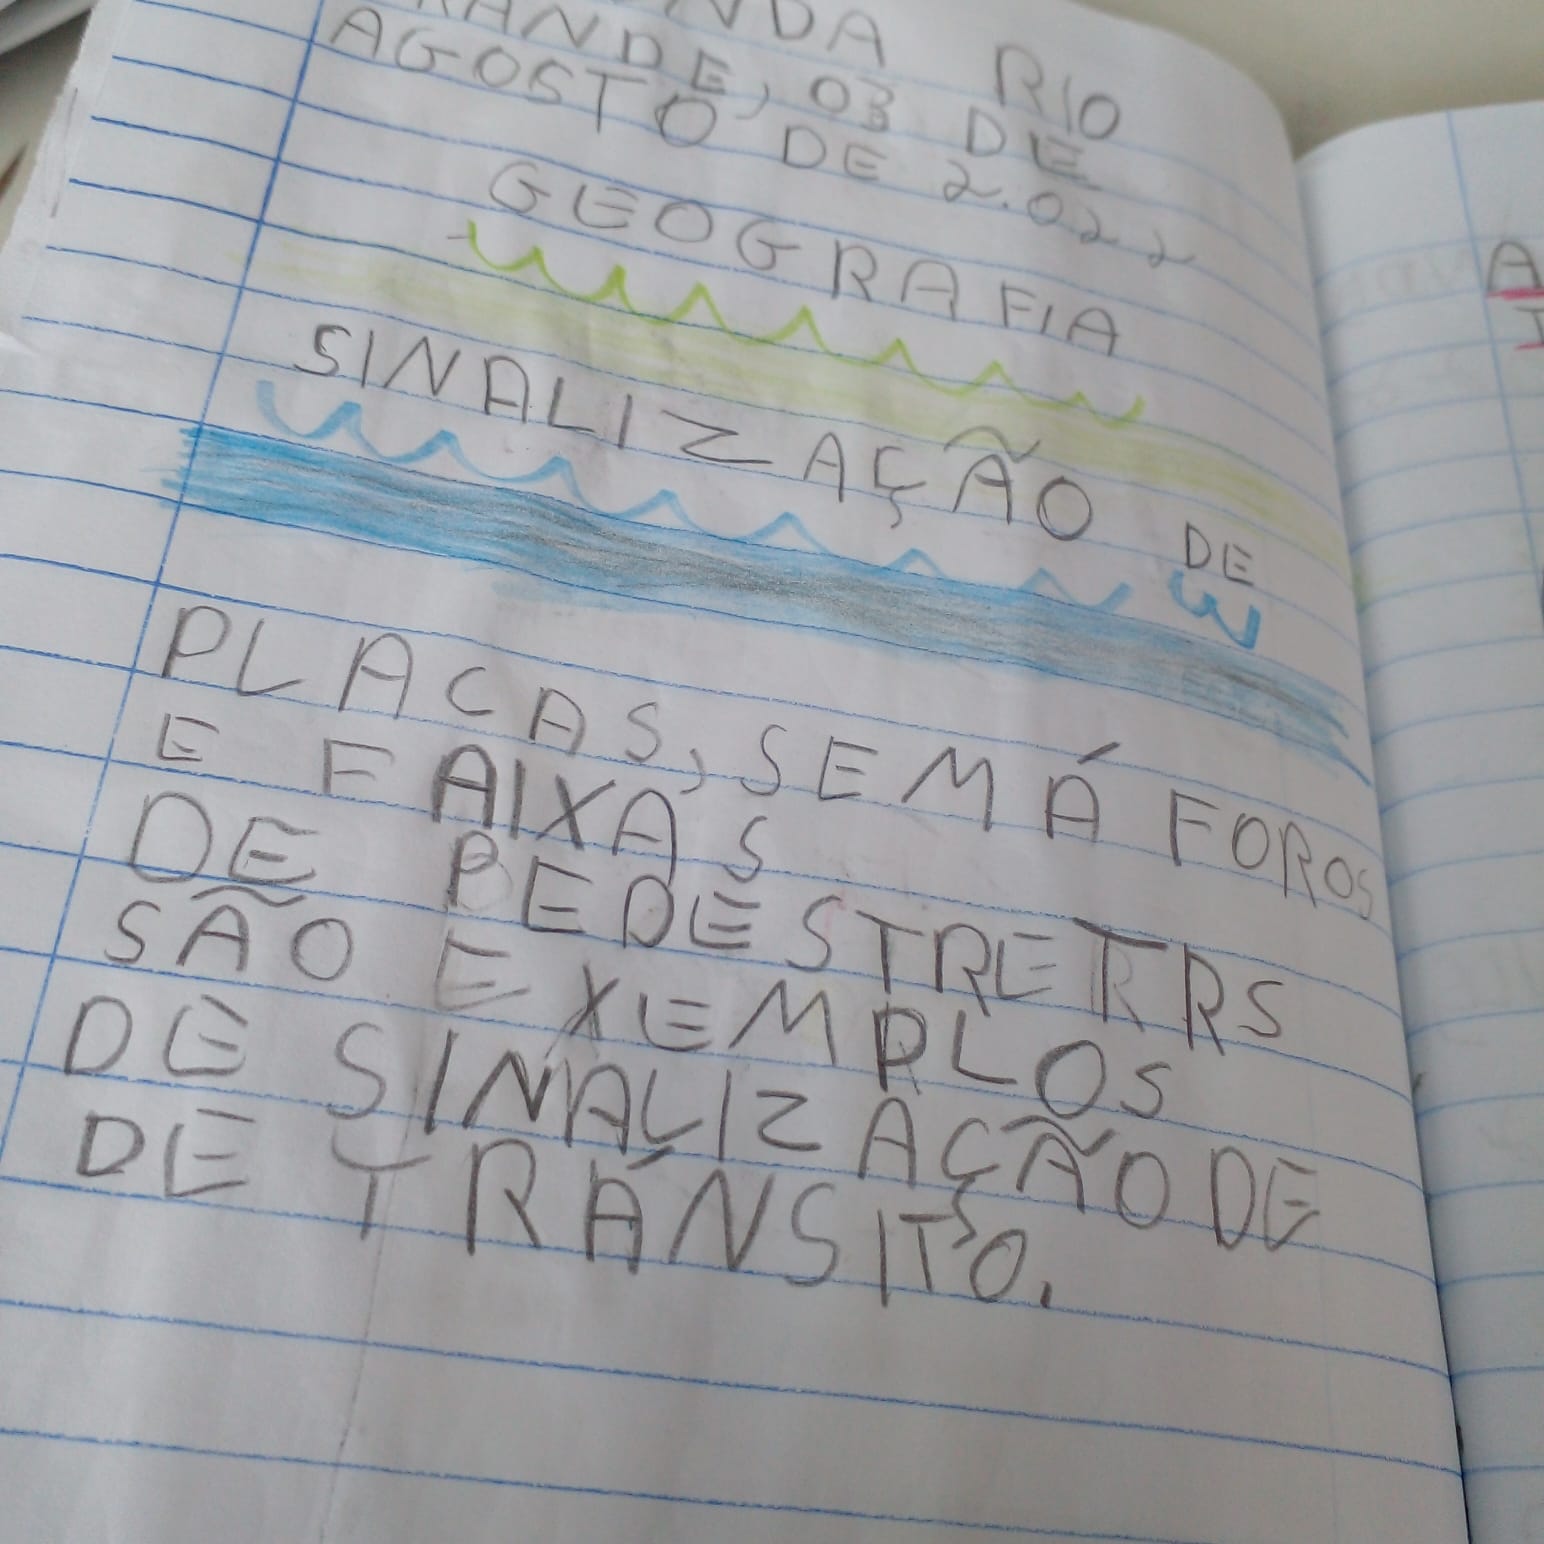 RIO
RANDE, 03 DE
AGOSTO DE 2.022
GEOGRAFIA
SINALIZAÇÃO DE
PLACAS, SEMÁFOROS
E FAIXAS
DE PEDESTRETRS
SÃO EXEMPLOS
DE SINALIZAÇÃO DE
DE TRÁNSITO.
A